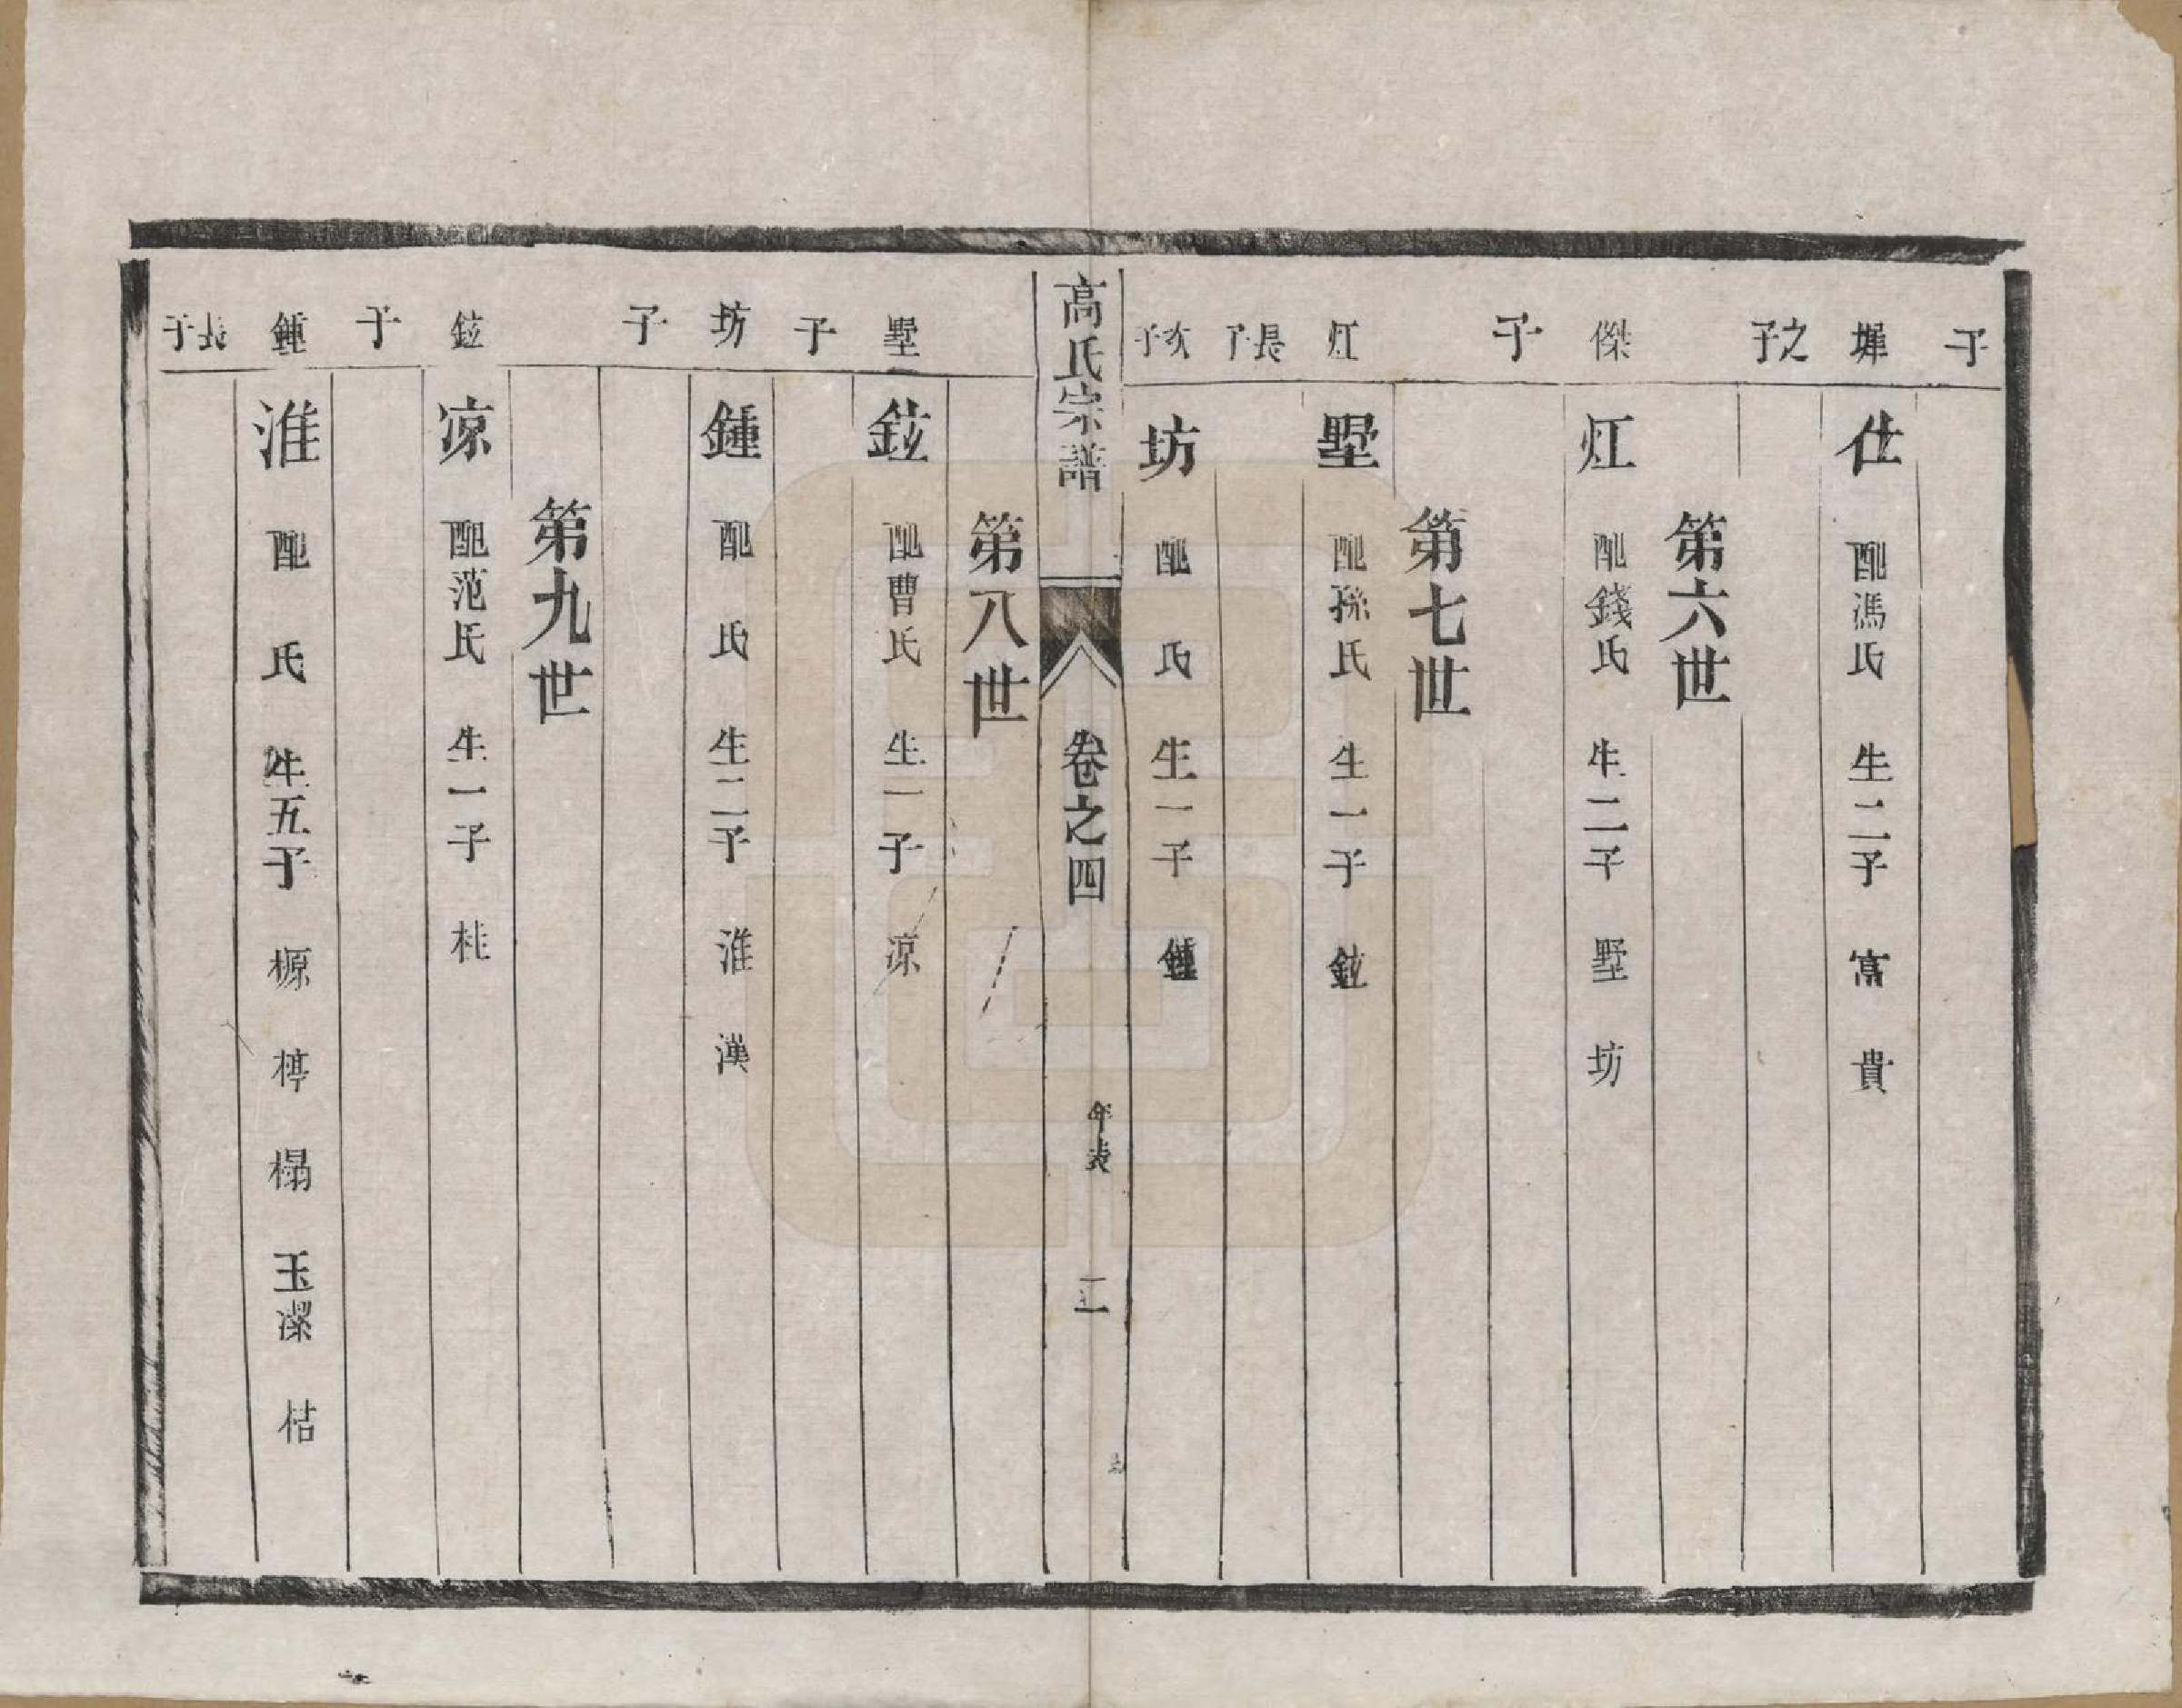 子
墀 仕 配馮氏 生二子 富 貴
之子
第六世
傑 灴 配錢氏 生二子 墅 坊
子
第七世
灴 墅 配孫氏 生一子 鉉
長子
次子 坊 配 氏 生一子 鍾
高氏宗譜 卷之四 年表 二
第八世
墅 鉉 配曹氏 生一子 凉
子
坊 鍾 配 氏 生二子 淮 漢
子
第九世
鉉 凉 配范氏 生一子 桂
子
鍾 淮 配 氏 生五子 榞 楟 榻 玉潔 枯
長子